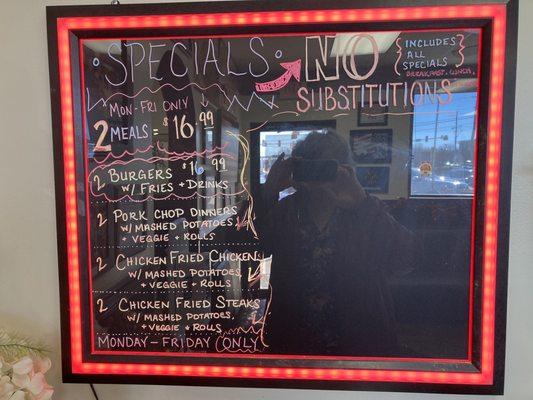 SPECIALS
NO
{INCLUDES
ALL
SPECIALS
BREAKFAST, LUNCH,
SUBSTITUTIONS
MON-FRI ONLY
2 MEALS = $16.99
2 BURGERS $16.99
W/ FRIES + DRINKS
2 PORK CHOP DINNERS
W/ MASHED POTATOES
+ VEGGIE + ROLLS
2 CHICKEN FRIED CHICKEN
W/ MASHED POTATOES,
+ VEGGIE + ROLLS
2 CHICKEN FRIED STEAKS
W/ MASHED POTATOES,
+ VEGGIE + ROLLS
MONDAY-FRIDAY ONLY